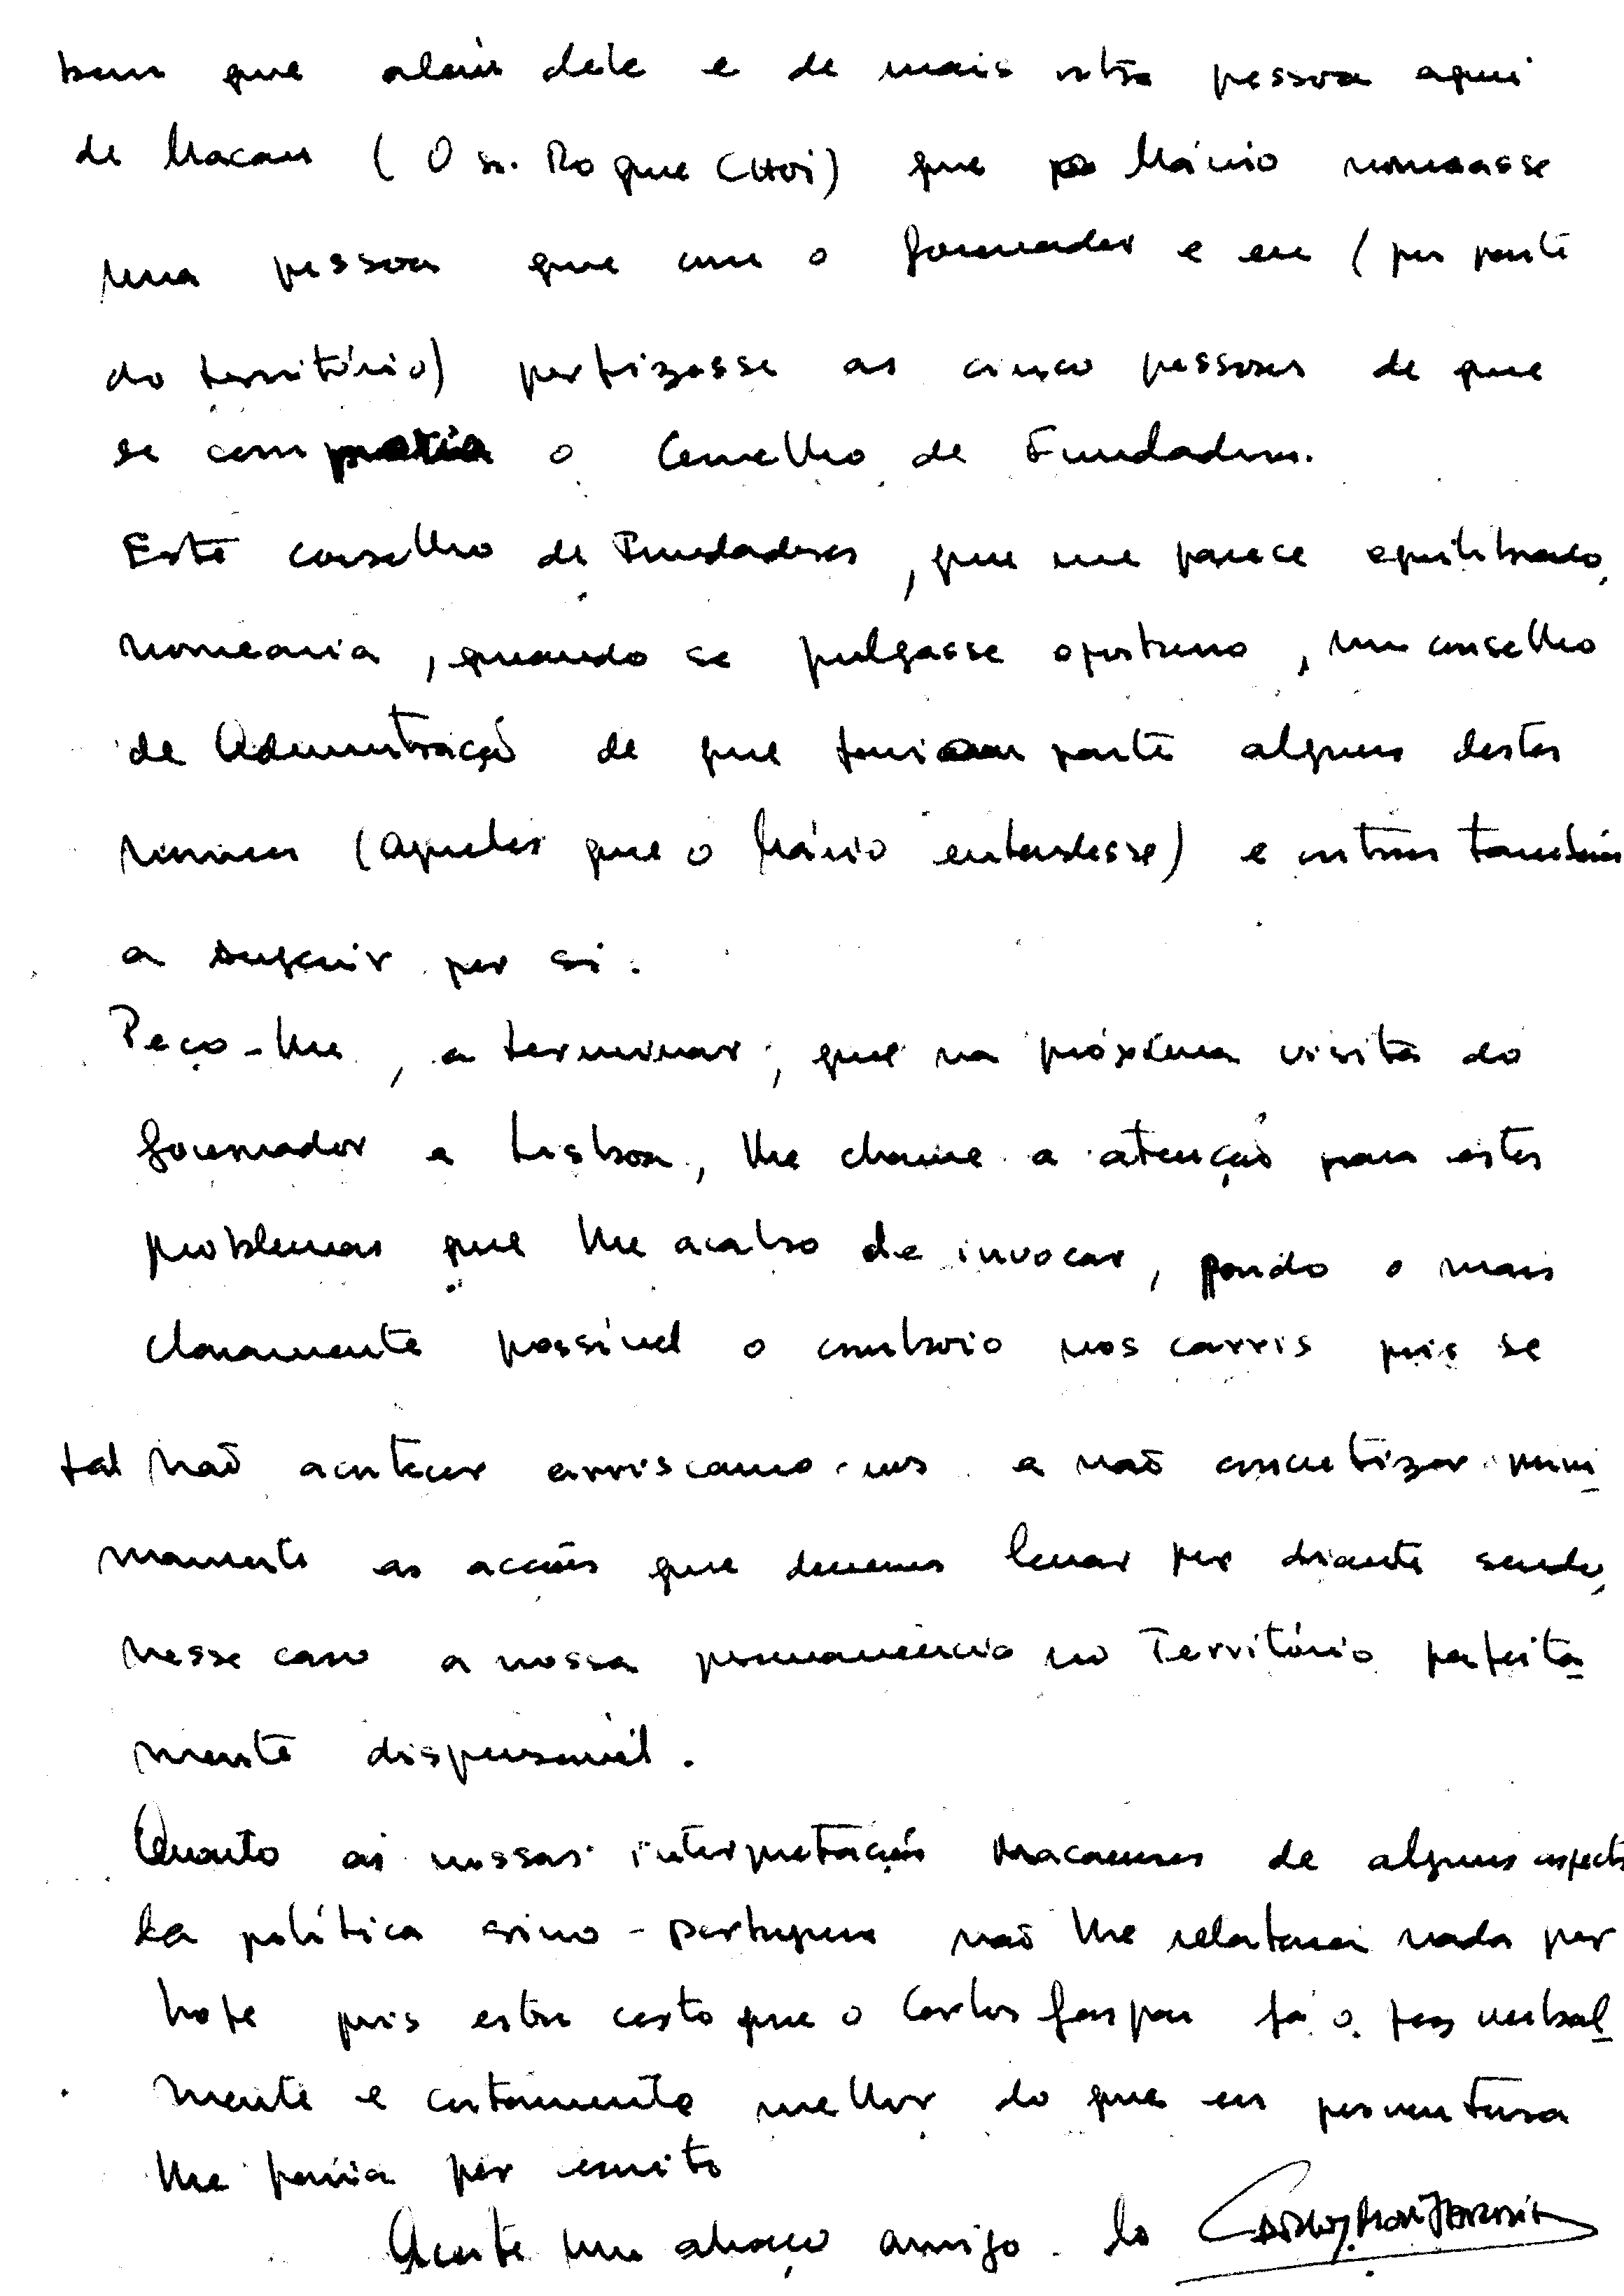 bem que além dele e de mais outra pessoa aqui
de Macau (O sr. Roque CHOI) que o Mário nomeasse
uma pessoa que com o Governador e eu (por parte
do território) perfizesse as cinco pessoas de que
se comporia o Conselho de Fundadores.
Este conselho de Fundadores, que me parece equilibrado,
nomearia, quando se julgasse oportuno, um conselho
de Administração de que fariam parte alguns destes
nomes (aqueles que o Mário entendesse) e outros também
a sugerir por si.
Peço-lhe, a terminar, que na próxima visita do
Governador a Lisboa, lhe chame a atenção para estes
problemas que lhe acabo de invocar, pondo o mais
claramente possível o comboio nos carris pois se
tal não acontecer arriscamo-nos a não concretizar mini
mamente as acções que devemos levar por diante sendo,
nesse caso a nossa permanência no Território perfeita
mente dispensável.
Quanto às nossas interpretações Macaenses de alguns aspectos
da política sino-portuguesa não lhe relatarei nada por
hoje pois estou certo que o Carlos Gaspar já o fez verbal
mente e certamente melhor do que eu porventura
lhe faria por escrito
Aceite um abraço amigo do